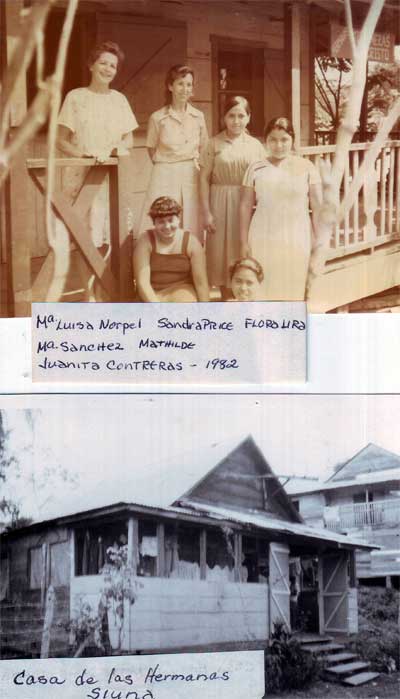 Mª. Luisa Norpel Sandra Price Flora Lira
Mª. Sanchez Mathilde
Juanita Contreras - 1982
Casa de las Hermanas
Siuna